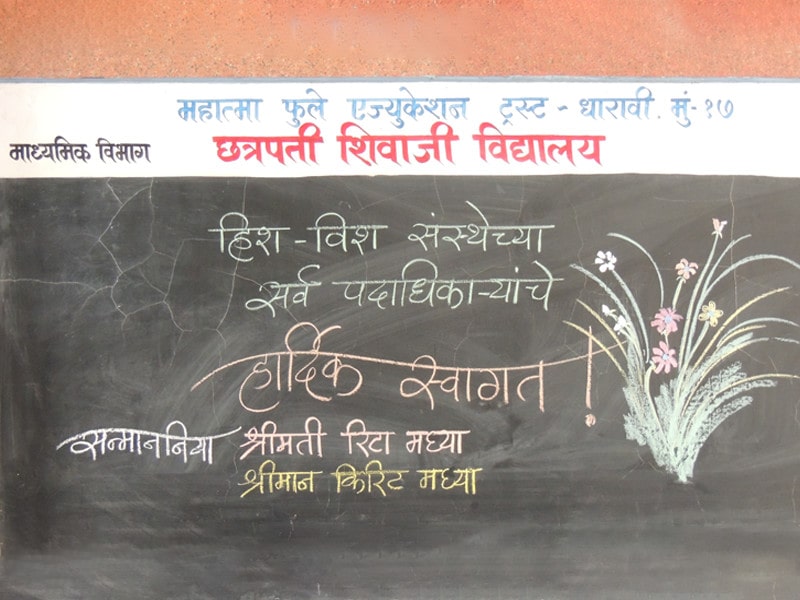 महात्मा फुले एज्युकेशन ट्रस्ट - धारावी. मुं-१७
माध्यमिक विभाग छत्रपती शिवाजी विद्यालय
हिश - विश संस्थेच्या
सर्व पदाधिकाऱ्यांचे
हार्दिक स्वागत !
सन्माननिया श्रीमती रिटा मध्या
श्रीमान किरिट मध्या